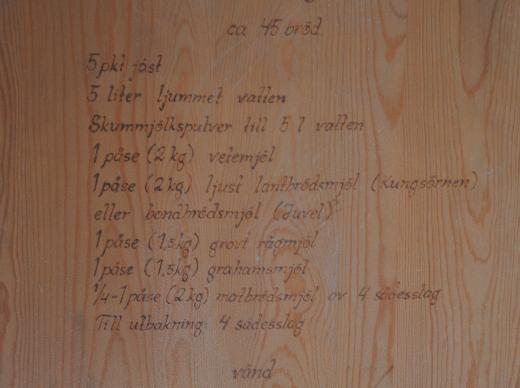 ca 45 bröd.
5 pkt jäst
5 liter ljummet vatten
Skummjölkspulver till 5 l vatten
1 påse (2 kg) vetemjöl
1 påse (2 kg) ljust lantbrödsmjöl (Kungsörnen)
eller bondbrödsmjöl (Juvel)
1 påse (1,5 kg) grovt rågmjöl
1 påse (1,5 kg) grahamsmjöl
1/4-1 påse (2 kg) matbrödsmjöl av 4 sädesslag
Till utbakning 4 sädesslag
vänd